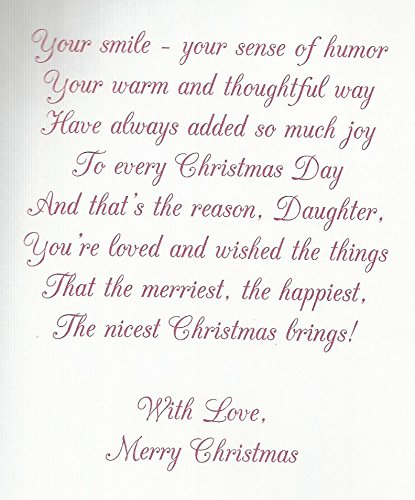 Your smile - your sense of humor
Your warm and thoughtful way
Have always added so much joy
To every Christmas Day
And that's the reason, Daughter,
You're loved and wished the things
That the merriest, the happiest,
The nicest Christmas brings!
With Love,
Merry Christmas